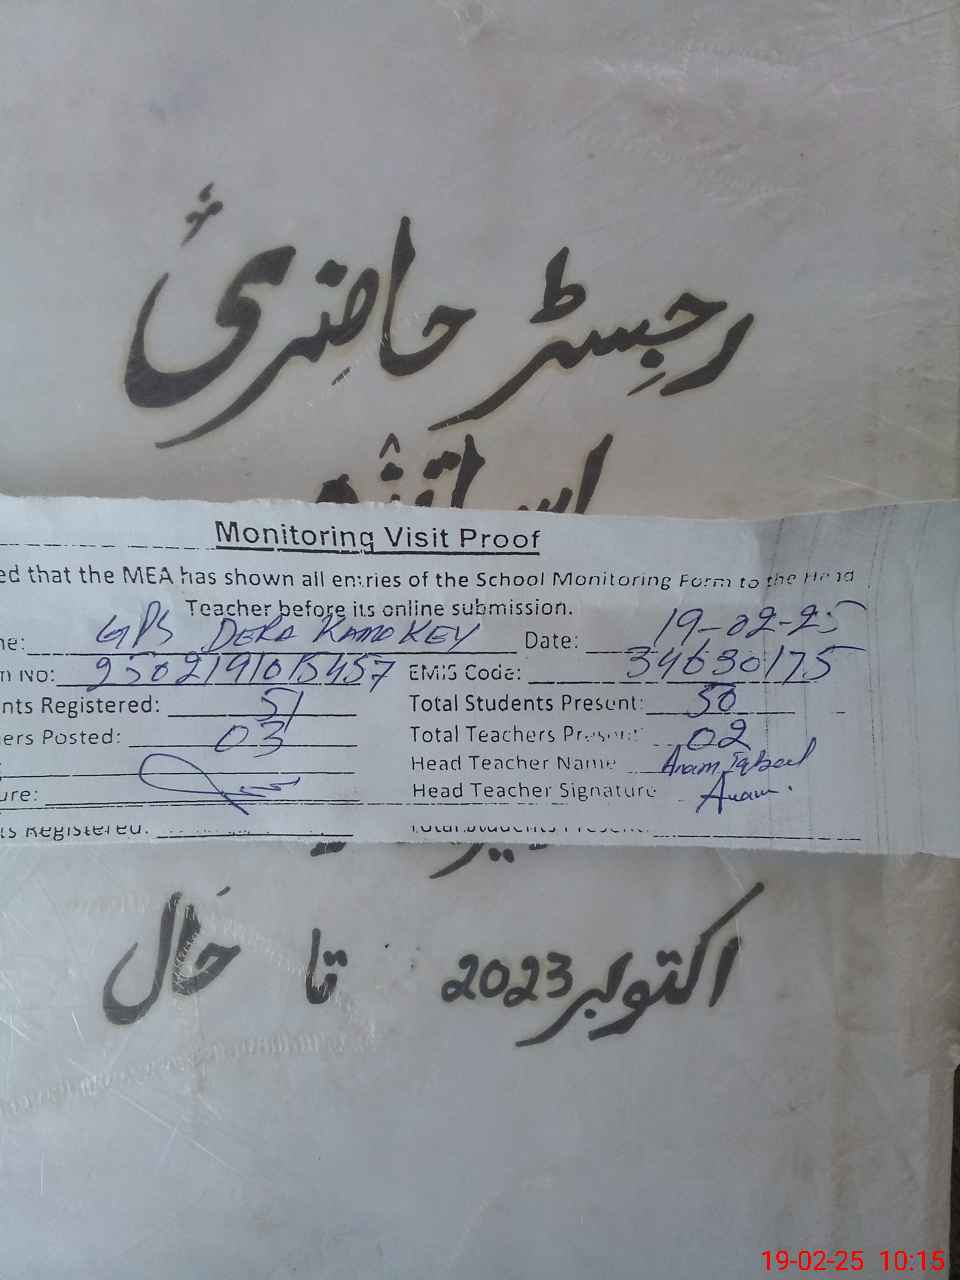 رجسٹر حاضریٔ
اساتذہ
Monitoring Visit Proof
ed that the MEA has shown all entries of the School Monitoring Form to the Head
Teacher before its online submission.
ne: GPS DERA KAMOKEY Date: 19-02-25
n No: 2502191015457 EMIS Code: 34630175
nts Registered: 51 Total Students Present: 50
ers Posted: 03 Total Teachers Present: 02
Head Teacher Name Anam Iqbal
ure: Head Teacher Signature Anam.
ts Registered: Total Students Present:
اکتوبر 2023 تا حَال
19-02-25 10:15